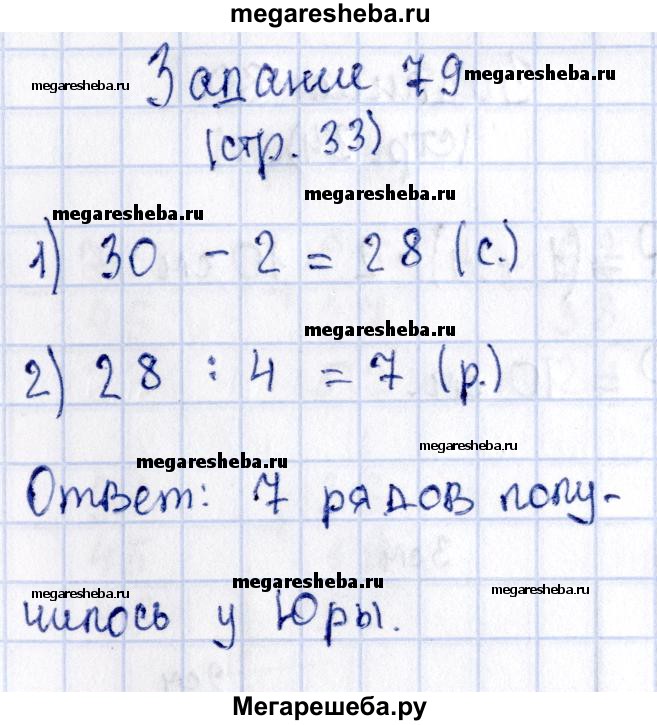 megaresheba.ru
Задание 79
megaresheba.ru
megaresheba.ru
(стр. 33)
megaresheba.ru
megaresheba.ru
1) 30 - 2 = 28 (с.)
megaresheba.ru
2) 28 : 4 = 7 (р.)
megaresheba.ru
megaresheba.ru
Ответ: 7 рядов полу-
megaresheba.ru
megaresheba.ru
megaresheba.ru
чилось у Юры.
Мегарешеба.ру